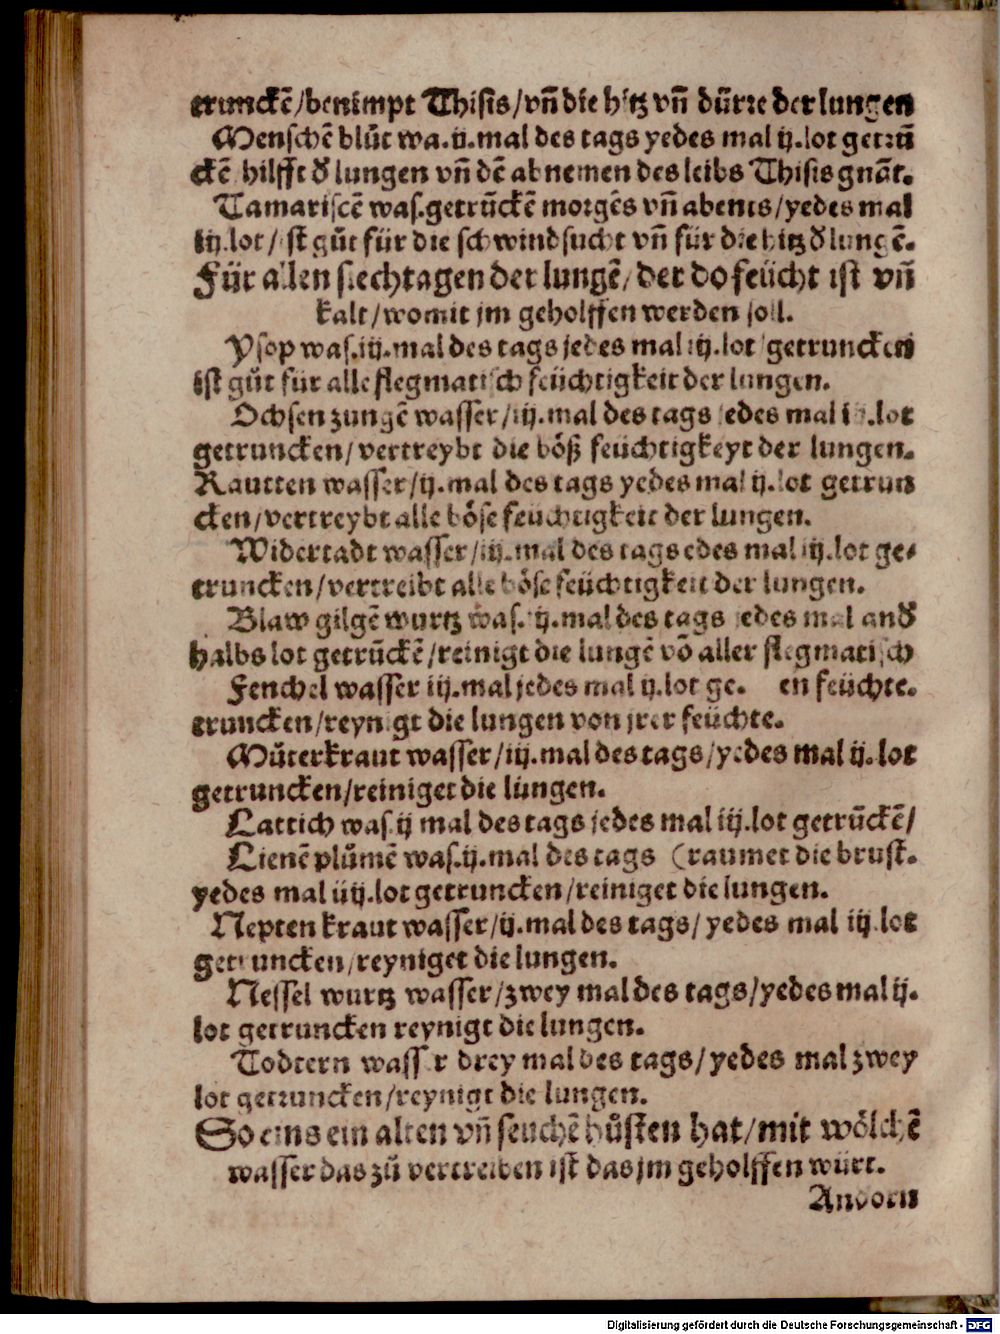 trunckē/benimpt Thisis/vñ die hitz vñ dürre der lungen
Menschē blůt wa.ij.mal des tags yedes mal ij.lot getrū
ckē hilfft d̕ lungen vñ dē abnemen des leibs Thisis gnāt.
Tamariscē was.getrūckē morgēs vñ abents/yedes mal
iij.lot/ist gůt für die schwindsucht vñ für die hitz d̕ lungē.
Für allen siechtagen der lungē/der do feücht ist vñ
kalt/womit jm geholffen werden soll.
Ysop was.iij.mal des tags jedes mal iij.lot getruncken
ist gůt für alle flegmatisch feüchtigkeit der lungen.
Ochsen zungē wasser/iij.mal des tags jedes mal .lot
getruncken/vertreybt die böß feüchtigkeyt der lungen.
Rautten wasser/ij.mal des tags yedes mal ij.lot getrun
cken/vertreybt alle böse feüchtigkeit der lungen.
Widertadt wasser/iij.mal des tags edes mal iij.lot ge⸗
truncken/vertreibt alle böse feüchtigkeit der lungen.
Blaw gilgē wurtz was. ij.mal des tags jedes mal and̕
halbs lot getrūckē/reinigt die lungē vō aller flegmatisch
Fenchel wasser iij.mal jedes mal ij.lot ge. en feüchte.
truncken/reynigt die lungen von jrer feüchte.
Můterkraut wasser/iij.mal des tags/yedes mal ij.lot
getruncken/reiniget die lungen.
Lattich was.ij mal des tags jedes mal iij.lot getrūckē/
Lienē plůmē was.ij.mal des tags (raumet die brust.
yedes mal iiij.lot getruncken/reiniget die lungen.
Nepten kraut wasser/ij.mal des tags/yedes mal iij.lot
getruncken/reyniget die lungen.
Nessel wurtz wasser/zwey mal des tags/yedes mal ij.
lot getruncken reynigt die lungen.
Todtern wasser drey mal des tags/yedes mal zwey
lot getruncken/reynigt die lungen.
So eins ein alten vñ seuchē hůsten hat/mit wölchē
wasser das zů vertreiben ist das jm geholffen würt.
Andorn
Digitalisierung gefördert durch die Deutsche Forschungsgemeinschaft - DFG